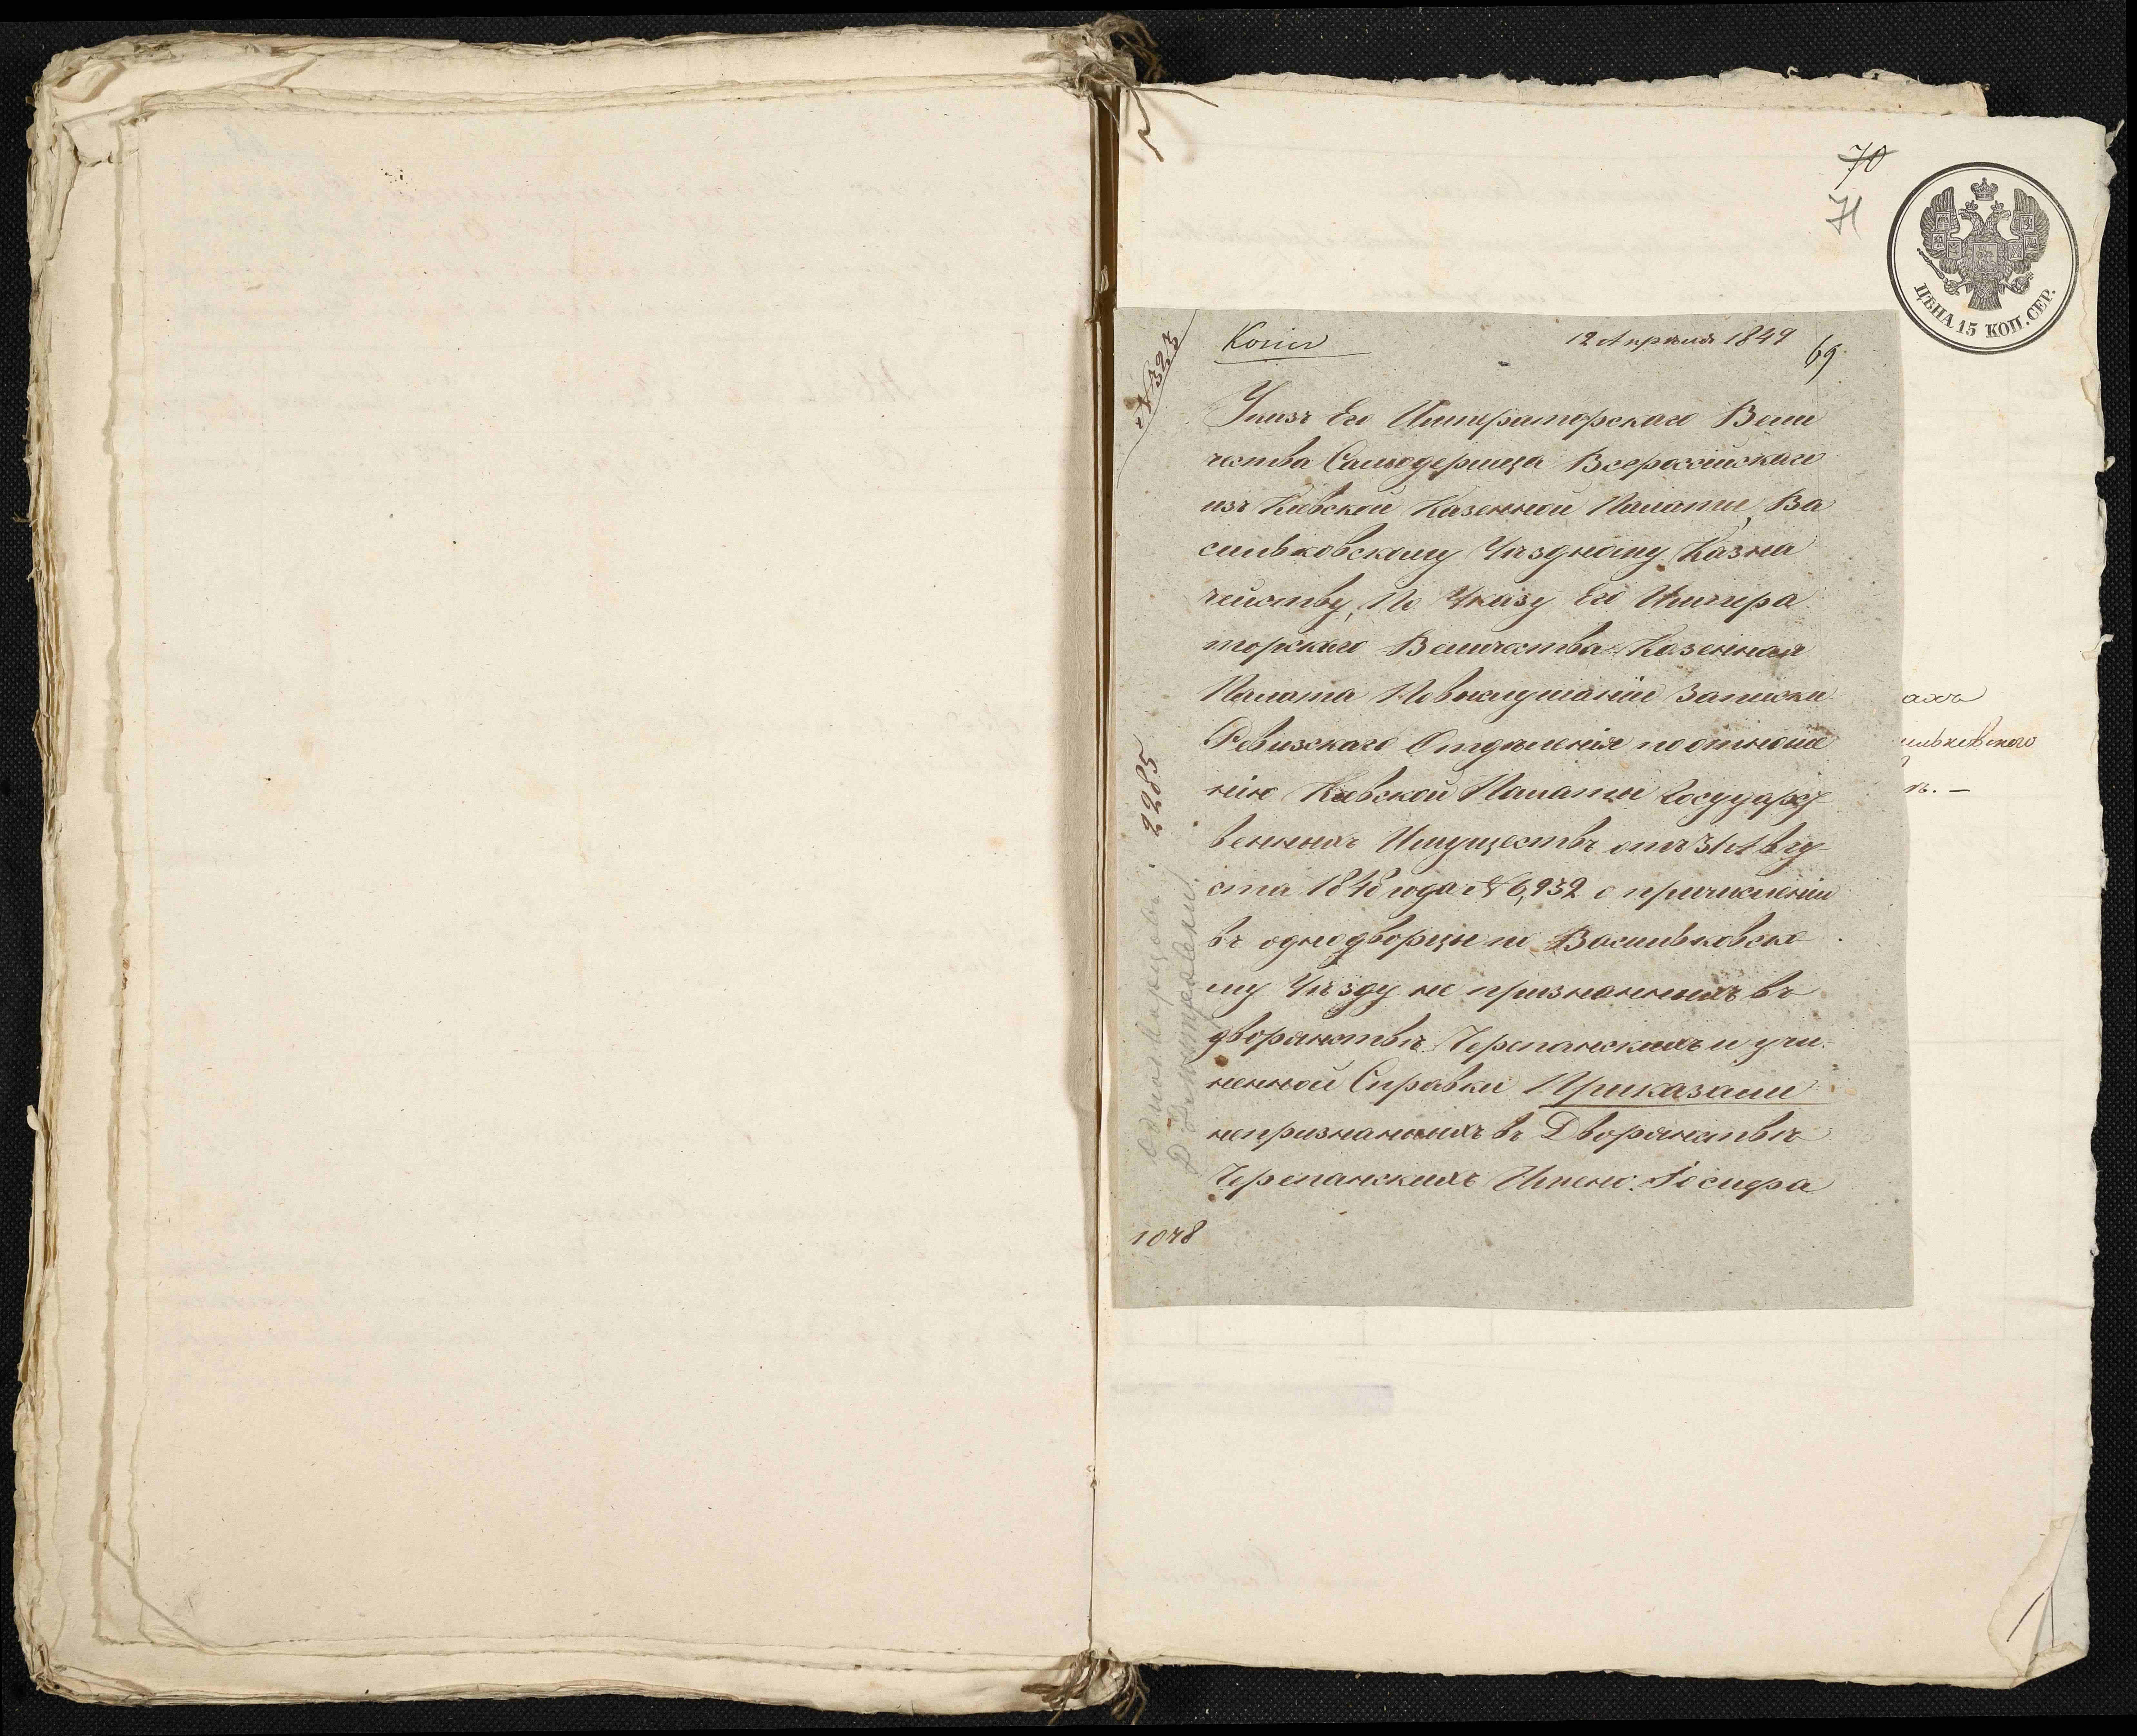 70
71
ЦѢНА 15 КОП. СЕР.
№ 323
Копія
12 Апрѣля 1849
69
Указъ Его Императорскаго Вели
чества Самодержца Всероссійскаго
изъ Кіевской Казенной Палаты, Ва
сильковскому Уѣздному Казна
чейству, По Указу Его Импера
торскаго Величества Казенная
Палата По выслушаніи Записки
Ревизскаго Отдѣленія по отноше
нію Кіевской Палаты Государст
венныхъ Имуществъ отъ 31 Авгу
ста 1848 года № 6,932 о причисленіи
въ однодворцы по Васильковско
му Уѣзду не признанныхъ въ
дворянствѣ Черепанскихъ и учи
ненной Справки Приказали
непризнанныхъ въ Дворянствѣ
Черепанскихъ Имено Іосифа
2285
1048
ахъ
сильковского
ъ. —